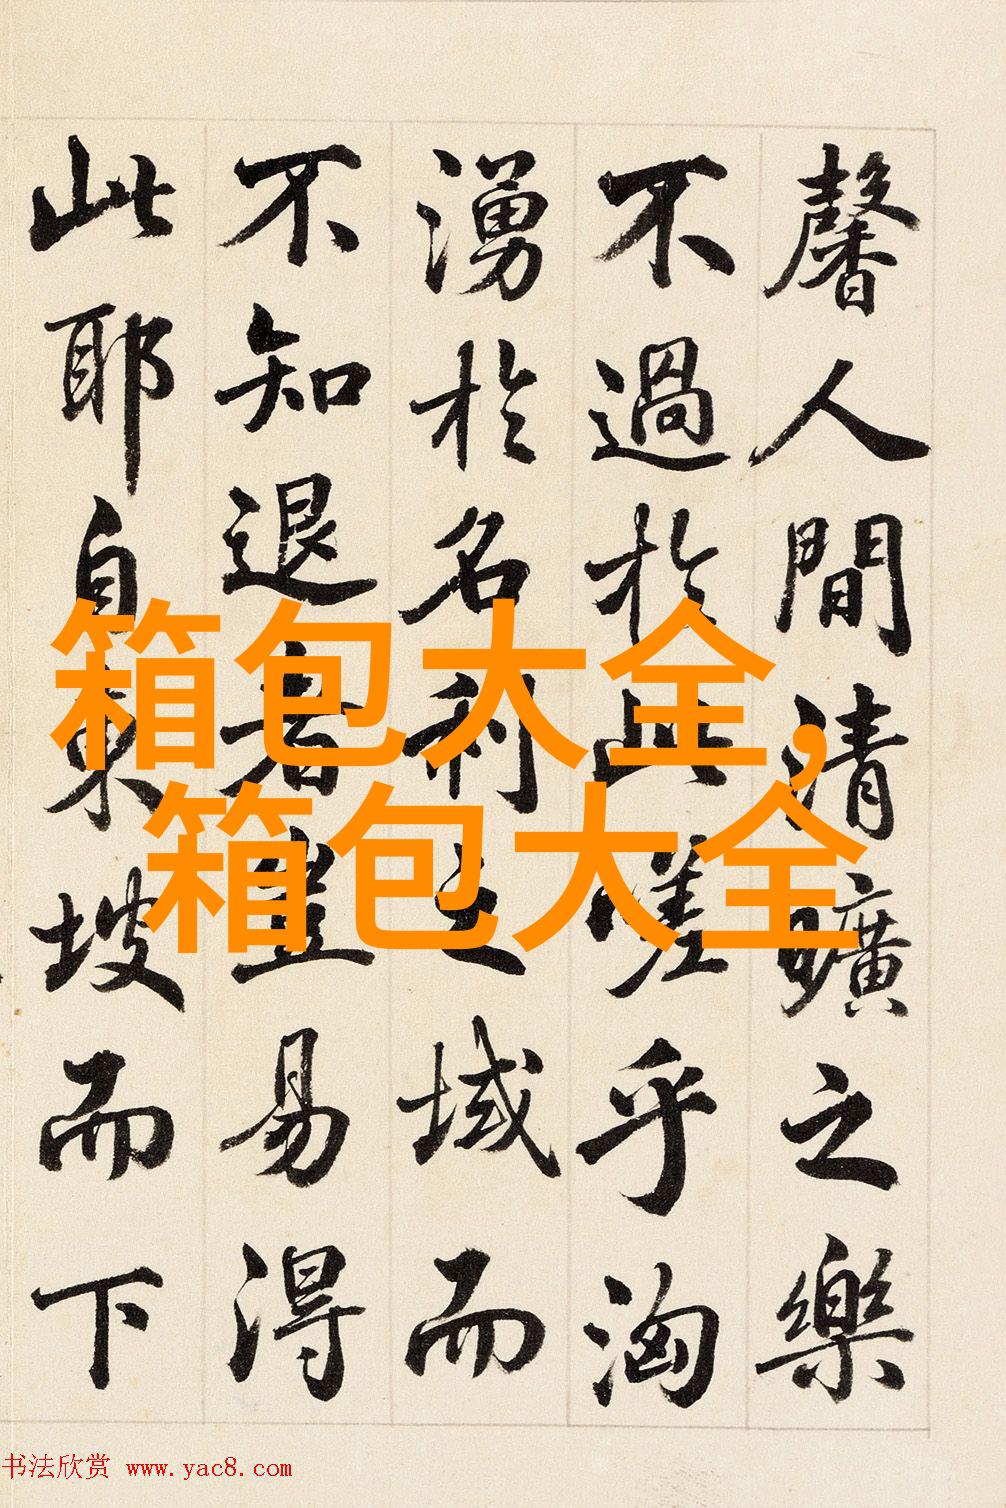 馨人間清曠之樂
不過於此嗟乎洶
湧於名利之域而
不知退者豈易得
此耶自東坡而下
箱包大全,
箱包大全
书法欣赏 www.yac8.com